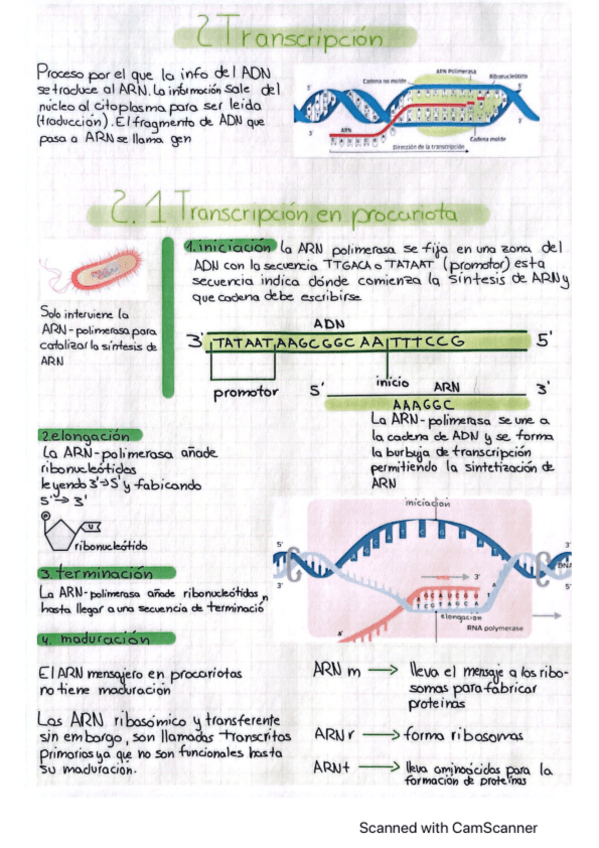 2 Transcripción
Proceso por el que la info del ADN
se traduce al ARN. La información sale del
núcleo al citoplasma para ser leída
(traducción). El fragmento de ADN que
pasa a ARN se llama gen
ARN Polimerasa
Ribonucleótido
Cadena no molde
5'
3'
3'
5'
ARN
Cadena molde
Dirección de la transcripción
2.1 Transcripción en procariota
1. iniciación La ARN polimerasa se fija en una zona del
ADN con la secuencia TTGACA o TATAAT (promotor) esta
secuencia indica dónde comienza la síntesis de ARN y
que cadena debe escribirse
Solo interviene la
ARN-polimerasa para
catalizar la síntesis de
ARN
ADN
3' TATAAT AAGCGGC AA TTTCCG 5'
promotor
inicio
5' ARN 3'
AAAGGC
La ARN-polimerasa se une a
la cadena de ADN y se forma
la burbuja de transcripción
permitiendo la sintetización de
ARN
2. elongación
La ARN-polimerasa añade
ribonucleótidos
leyendo 3'→5' y fabicando
5'→3'
P
U
ribonucleótido
3. terminación
La ARN-polimerasa añade ribonucleótidos
hasta llegar a una secuencia de terminació n
iniciacion
5'
3'
3'
DNA
5'
3'
GCAUCGU
TCGTAGCA
elongacion
RNA polymerase
4. maduración
El ARN mensajero en procariotas
no tiene maduración
Los ARN ribosómico y transferente
sin embargo, son llamados transcritos
primarios ya que no son funcionales hasta
su maduración.
ARN m → lleva el mensaje a los ribo-
somas para fabricar
proteínas
ARN r → forma ribosomas
ARN t → lleva aminoácidos para la
formación de proteínas
Scanned with CamScanner